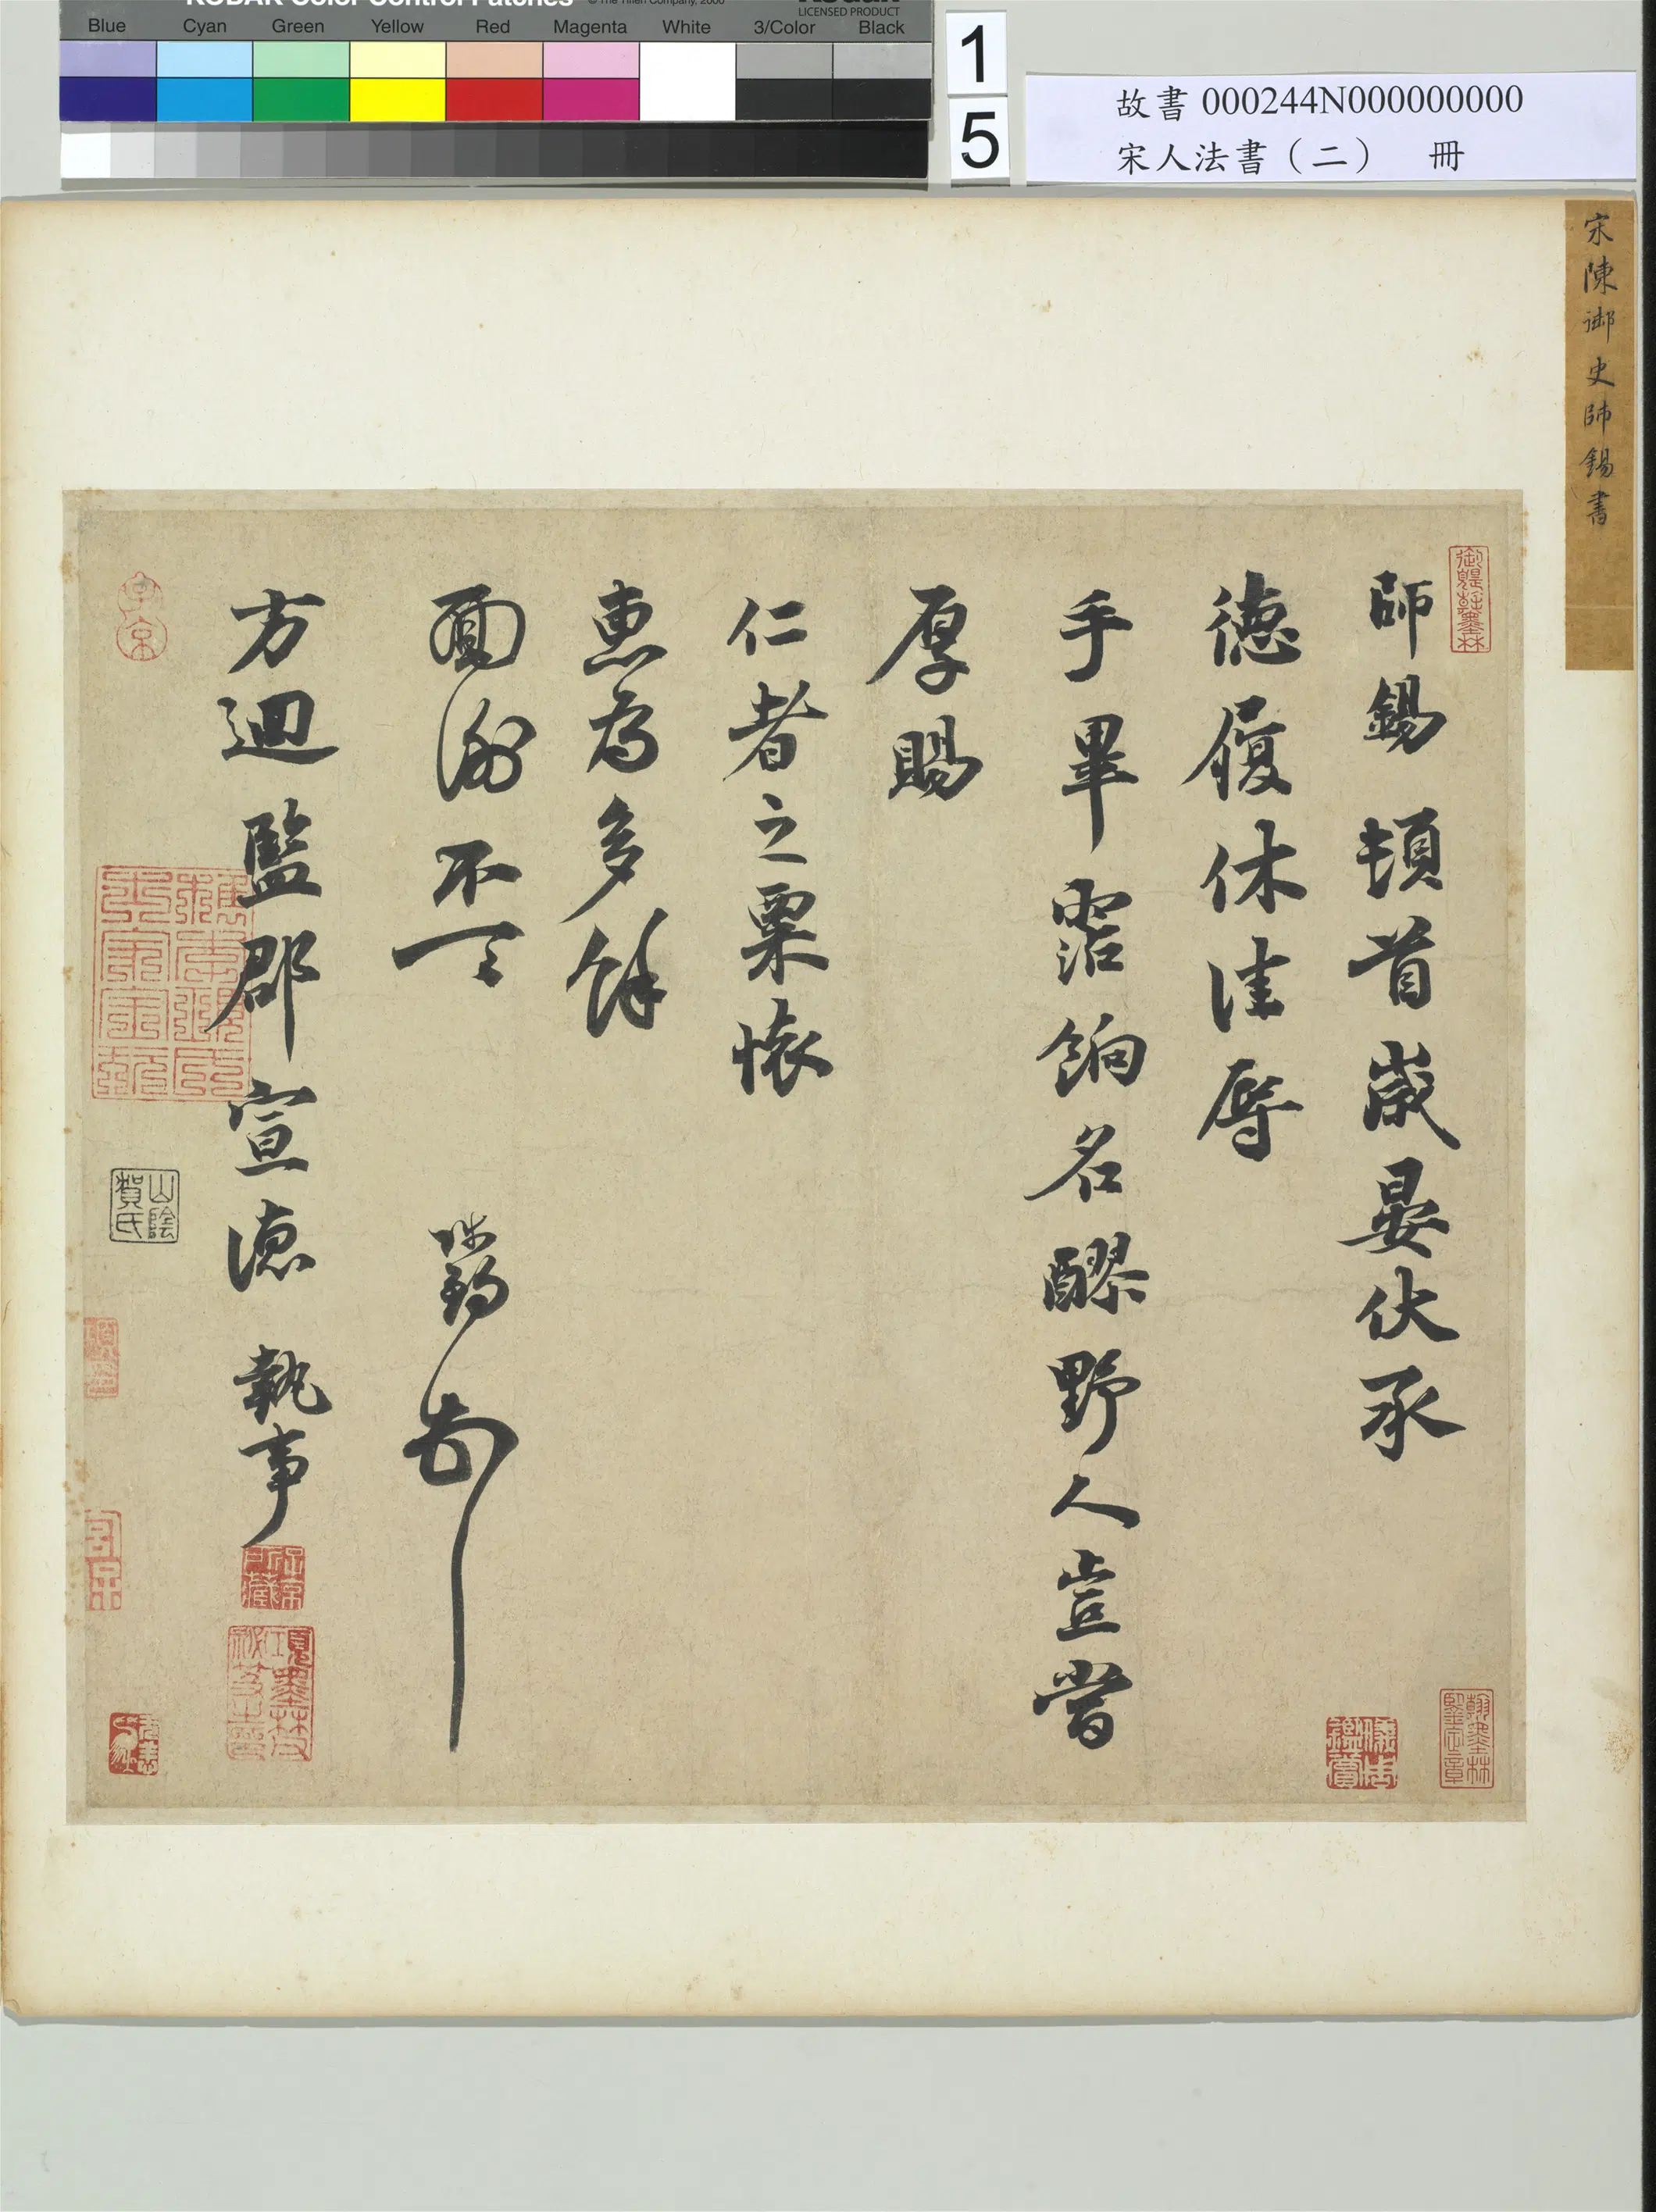 KODAK Color Control Patches © The Tiffen Company, 2000 Kodak
LICENSED PRODUCT
Blue Cyan Green Yellow Red Magenta White 3/Color Black
1
5
故書000244N000000000
宋人法書（二） 冊
宋陳御史師錫書
師錫頓首歲晏伏承
德履休佳辱
手畢霑餉名醪野人豈嘗
厚賜
仁者之栗懷
惠為多餘
面謝不一一
師錫
方迴監郡宣德執事
山陰賀氏
子京
子京所藏
項墨林父秘笈之印
儀周鑑賞
翰墨林鑒定章